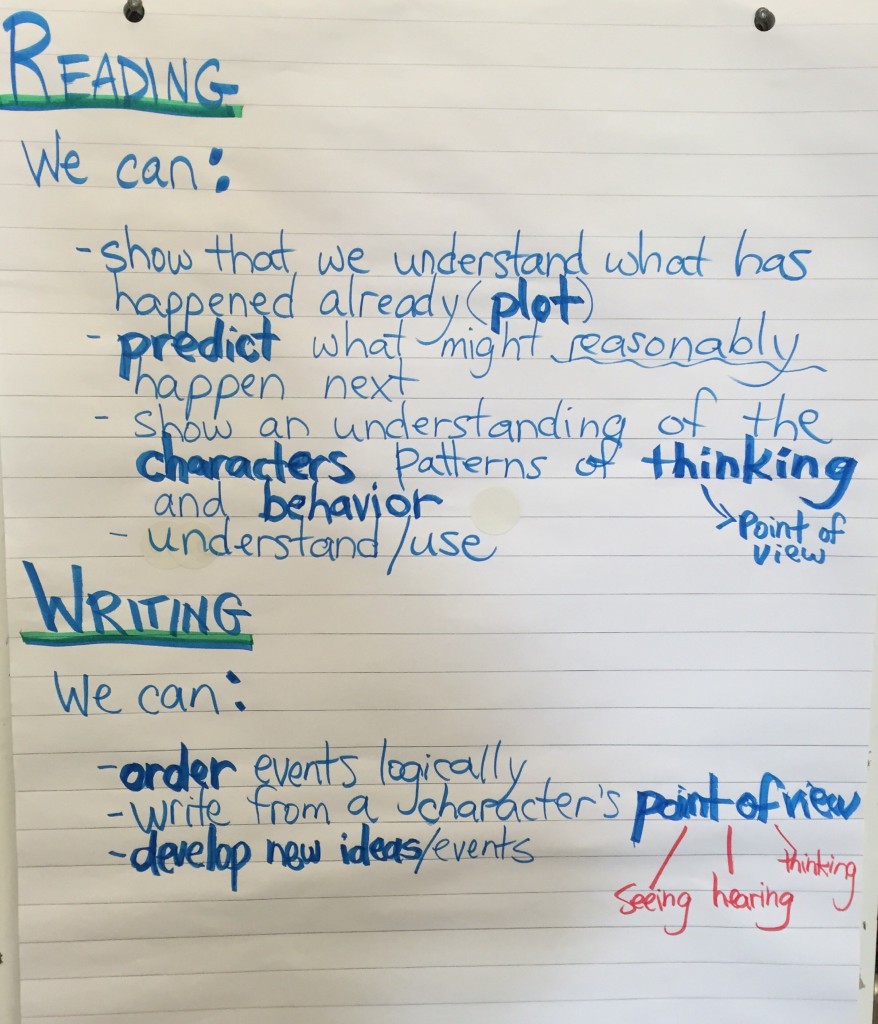 READING
We can:
- show that we understand what has
happened already (plot)
- predict what might reasonably
happen next
- show an understanding of the
characters patterns of thinking
and behavior
Point of
view
- understand/use
WRITING
We can:
- order events logically
- write from a character's point of view
- develop new ideas/events
seeing hearing thinking